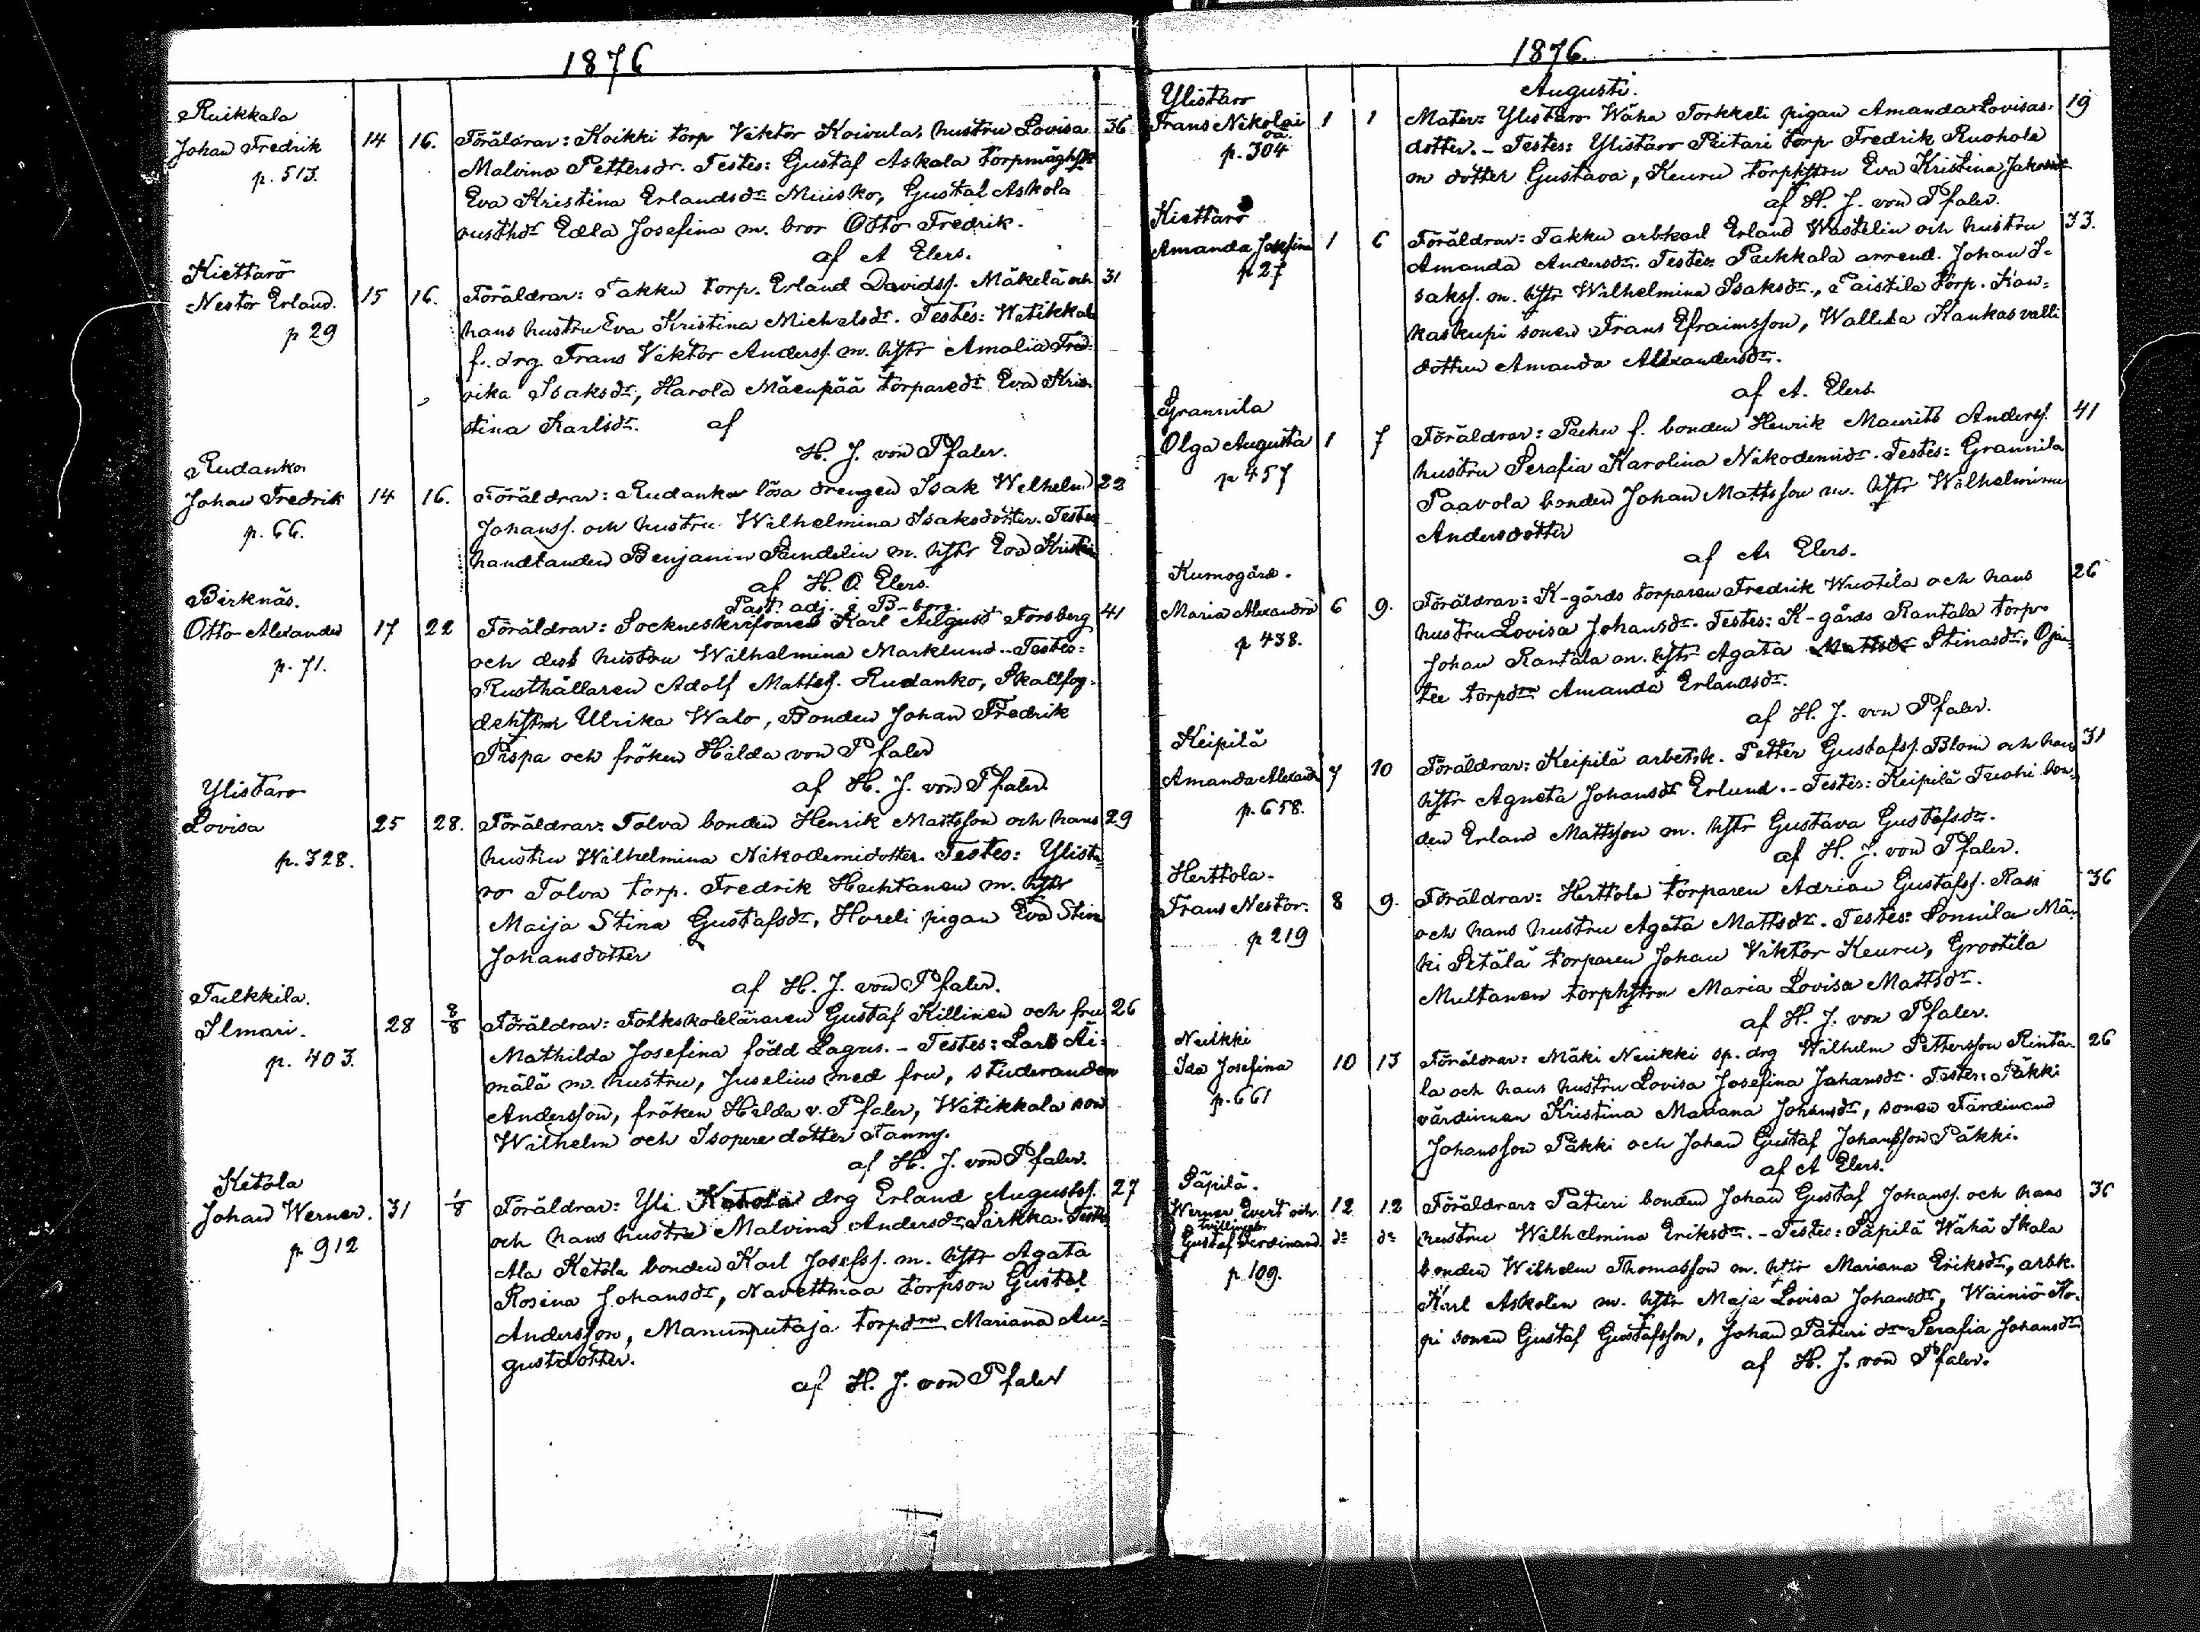 1876
Ruikkala
Johan Fredrik 14 16. Föräldrar: Koikki torp Viktor Koivula, hustru Lovisa 36
p. 513. Malvina Pettersdr. Testes: Gustaf Askola
Eva Kristina Erlandsdr Muisko, Gustaf Askola
rusthdr Edla Josefina m. bror Otto Fredrik.
af A Elers.
Kiettarö
Nestor Erland. 15 16. Föräldrar: Takku torp. Erland Davidss. Mäkelä och 31
p 29 hans hustru Eva Kristina Michelsdr. Testes: Witikkala
f. drg Frans Viktor Anderss. m. hstr Amalia Fred-
rika Isaksdr, Harola Mäenpää torparedr Eva Kris-
tina Karlsdr. af
H. J. von Pfaler.
Rudanko
Johan Fredrik 14 16. Föräldrar: Rudanko lösa drengen Isak Wilhelm 22
p. 66. Johanss. och hustru Wilhelmina Isaksdotter. Testes
handlanden Benjamin m. hstr Eva Kristina
af H. O. Elers.
Past. adj. i B-borg.
Birknäs.
Otto Alexander 17 22 Föräldrar: Sockneskrifvaren Karl August Forsberg 41
p. 71. och dess hustru Wilhelmina Marklund.- Testes:
Rusthållaren Adolf Mattss. Rudanko, Skallfog-
dehstru Ulrika Walo, Bonden Johan Fredrik
Pispa och fröken Hilda von Pfaler
af H. J. von Pfaler
Ylistaro
Lovisa 25 28. Föräldrar: Tolva bonden Henrik Mattsson och hans 29
p. 328. hustru Wilhelmina Nikodemidotter. Testes: Ylista-
ro Tolva torp. Fredrik Huhtanen m. hstr
Maija Stina Gustafsdr, Horeli pigan Eva Stina
Johansdotter
af H. J. von Pfaler.
Tulkkila.
Ilmari. 28 8/8 Föräldrar: Folkskoleläraren Gustaf Killinen och fru 26
p. 403. Mathilda Josefina född Lagus.- Testes: Lars Äi-
mälä m. hustru, Juselius med fru, studeranden
Andersson, fröken Hilda v. Pfaler, Witikkala son
Wilhelm och Isopere dotter Fanny.
af H. J. von Pfaler.
Ketola
Johan Werner. 31 1/8 Föräldrar: Yli Ketola drg Erland Augustss. 27
p 912 och hans hustru Malvina Andersdr Sirkka. Testes
Ala Ketola bonden Karl Josefss. m. hstr Agata
Rosina Johansdr, Navettmaa torpson Gustaf
Andersson, Manunputaja torpdrn Mariana Au-
gustdotter.
af H. J. von Pfaler
1876.
Augusti.
Ylistaro
Frans Nikolai 1 1 Mater: Ylistaro Wäha Torkkeli pigan Amanda Lovisas- 19
oä.
p. 304 dotter.- Testes: Ylistaro Peitari torp Fredrik Ruohola
m dotter Gustava, Keuru torphstru Eva Kristina
af H. J. von Pfaler.
Kiettarö
Amanda Josefina 1 6 Föräldrar: Takku arbkarl Erland Wastelin och hustru 33.
p 27 Amanda Andersdr. Testes: Pukkala arrend. Johan I-
sakss. m. hstr Wilhelmina Isaksdr, Paistila torp. Kan-
kaskupi sonen Frans Efraimsson, Wallila Kankasvalli
dottren Amanda Alexandersdr.
af A. Elers.
Grannila
Olga Augusta 1 7 Föräldrar: Puhu f. bonden Henrik Maurits Anderss. 41
p 457 hustru Serafia Karolina Nikodemidr. Testes: Grannila
Paavola bonden Johan Mattsson m. hstr Wilhelmina
Andersdotter
af A. Elers.
Kumogård.
Maria Alexandra 6 9. Föräldrar: K-gårds torparen Fredrik Wuotila och hans 26
p 438. hustru Lovisa Johansdr. Testes: K-gårds Rantala torp.
Johan Rantala m. hstr Agata Stinasdr, Ojan-
tee torpdrn Amanda Erlandsdr.
af H. J. von Pfaler.
Keipilä
Amanda Alexandra 7 10 Föräldrar: Keipilä arbetsk. Petter Gustafss. Blom och hans 31
p. 658. hstr Agneta Johansdr Erlund.- Testes: Keipilä bon-
den Erland Mattsson m. hstr Gustava Gustafsdr.
af H. J. von Pfaler.
Herttola.
Frans Nestor. 8 9. Föräldrar: Herttola torparen Adrian Gustafss. Rasi 36
p 219 och hans hustru Agata Mattsdr. Testes: Sonnila Mä-
ki Pitälä torparen Johan Viktor Keuru, Grootila
Multanen torphstru Maria Lovisa Mattsdr.
af H. J. von Pfaler.
Nuikki
Ida Josefina 10 13 Föräldrar: Mäki Nuikki sp. drg Wilhelm Pettersson Rinta- 26
p. 661 la och hans hustru Lovisa Josefina Johansdr. Testes: Päkki
värdinnan Kristina Mariana Johansdr, sonen Färdinand
Johansson Päkki och Johan Gustaf Johansson Päkki.
af A Elers.
Päpilä.
Werner Evert och 12 12 Föräldrar: Paturi bonden Johan Gustaf Johanss. och hans 36
tvillingb.
Gustaf Ferdinand. do do hustru Wilhelmina Eriksdr.- Testes: Päpilä Wähä Skala
p. 109. bonden Wilhelm Thomasson m. hstr Mariana Eriksdr, arbk.
Karl Askolin m. hstr Maja Lovisa Johansdr, Wainiö Ko-
pi sonen Gustaf Gustafsson, Johan Paturi dr Serafia Johansdr
af H. J. von Pfaler.